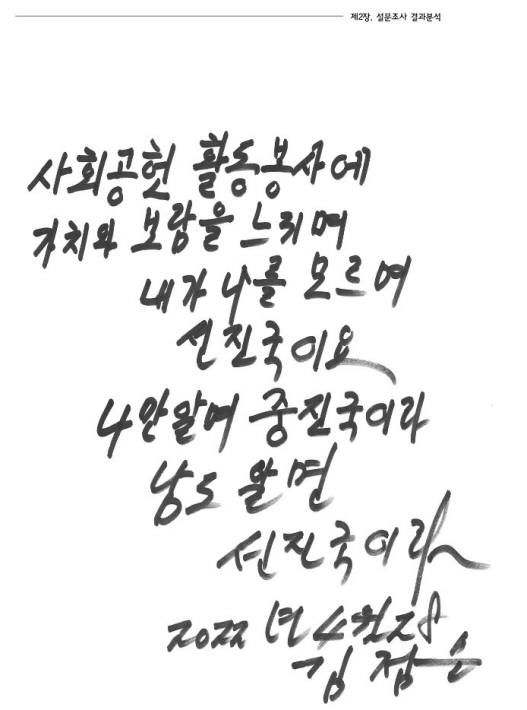 제2장. 설문조사 결과분석
사회공헌 활동봉사에
가치와 보람을 느끼며
내가 나를 모르며
선진국이요
나만알며 중진국이라
남도 알면
선진국이라
2022년 4월28
김점순